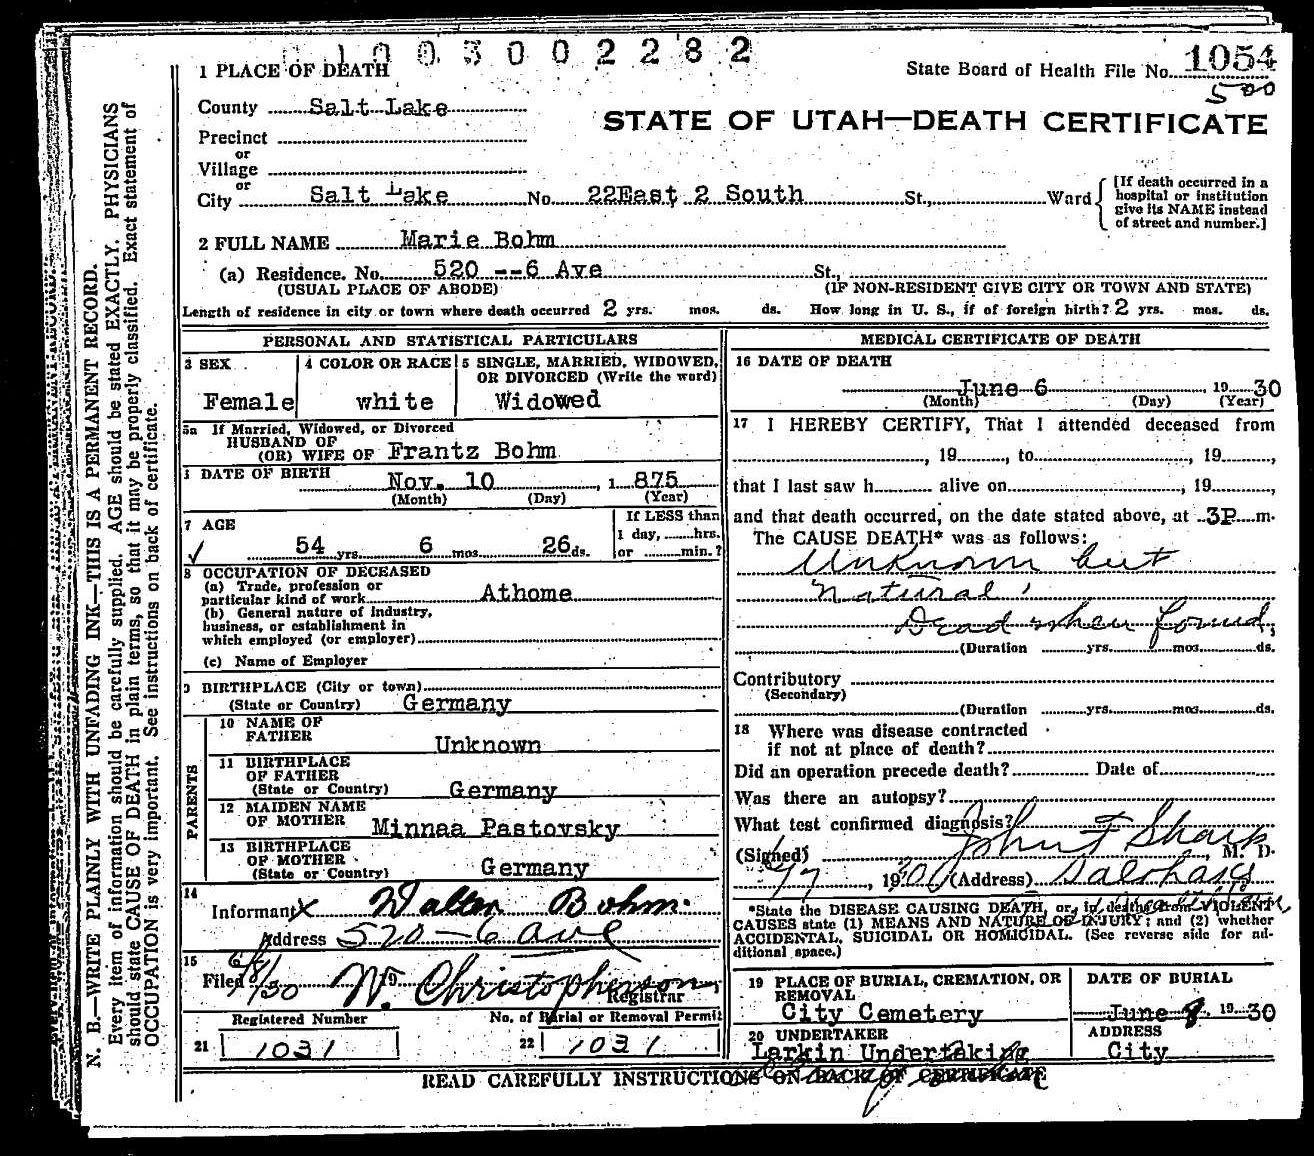 1003002282
State Board of Health File No. 1054
500
STATE OF UTAH—DEATH CERTIFICATE
1 PLACE OF DEATH
County Salt Lake
Precinct
or
Village
or
City Salt Lake No. 22East 2 South St., Ward
[If death occurred in a
hospital or institution
give its NAME instead
of street and number.]
2 FULL NAME Marie Bohm
(a) Residence. No. 520 --6 Ave St.,
(USUAL PLACE OF ABODE) (IF NON-RESIDENT GIVE CITY OR TOWN AND STATE)
Length of residence in city or town where death occurred 2 yrs. mos. ds. How long in U. S., if of foreign birth? 2 yrs. mos. ds.
PERSONAL AND STATISTICAL PARTICULARS
3 SEX
Female
4 COLOR OR RACE
white
5 SINGLE, MARRIED, WIDOWED,
OR DIVORCED (Write the word)
Widowed
5a If Married, Widowed, or Divorced
HUSBAND OF
(OR) WIFE OF Frantz Bohm
DATE OF BIRTH
Nov. 10, 1 875
(Month) (Day) (Year)
7 AGE
✓ 54 yrs. 6 mos. 26 ds.
If LESS than
1 day, hrs.
or min.?
8 OCCUPATION OF DECEASED
(a) Trade, profession or
particular kind of work Athome
(b) General nature of industry,
business, or establishment in
which employed (or employer)
(c) Name of Employer
BIRTHPLACE (City or town)
(State or Country) Germany
PARENTS
10 NAME OF
FATHER
Unknown
11 BIRTHPLACE
OF FATHER
(State or Country) Germany
12 MAIDEN NAME
OF MOTHER Minnaa Pastovsky
13 BIRTHPLACE
OF MOTHER
(State or Country) Germany
14
Informant X Walter Bohm.
Address 520 - 6 ave
15
Filed 6/8/30 19 W. Christopherson
Registrar
Registered Number
21 1031
No. of Burial or Removal Permit
22 1031
MEDICAL CERTIFICATE OF DEATH
16 DATE OF DEATH
June 6 19 30
(Month) (Day) (Year)
17 I HEREBY CERTIFY, That I attended deceased from
, 19 , to , 19 ,
that I last saw h alive on , 19 ,
and that death occurred, on the date stated above, at 3P m.
The CAUSE DEATH* was as follows:
Unknown but
natural
Dead when found,
(Duration yrs. mos. ds.
Contributory
(Secondary)
(Duration yrs. mos. ds.
18 Where was disease contracted
if not at place of death?
Did an operation precede death? Date of
Was there an autopsy?
What test confirmed diagnosis?
(Signed) John F Sharp, M. D.
6/7, 1930 (Address)
*State the DISEASE CAUSING DEATH, or, in deaths from VIOLENT
CAUSES state (1) MEANS AND NATURE OF INJURY; and (2) whether
ACCIDENTAL, SUICIDAL OR HOMICIDAL. (See reverse side for ad-
ditional space.)
19 PLACE OF BURIAL, CREMATION, OR
REMOVAL
City Cemetery
DATE OF BURIAL
June 8 19 30
20 UNDERTAKER
Larkin Undertaking
ADDRESS
City
READ CAREFULLY INSTRUCTIONS ON BACK OF CERTIFICATE
N. B.—WRITE PLAINLY WITH UNFADING INK—THIS IS A PERMANENT RECORD.
Every item of information should be carefully supplied. AGE should be stated EXACTLY. PHYSICIANS
should state CAUSE OF DEATH in plain terms, so that it may be properly classified. Exact statement of
OCCUPATION is very important. See instructions on back of certificate.